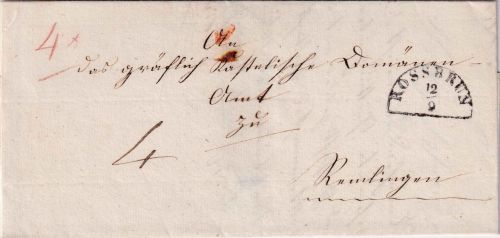 4x
An
das gräflich Kastelische Domänen
Amt
zu
ROSSBRUN
12
9
4
Remlingen